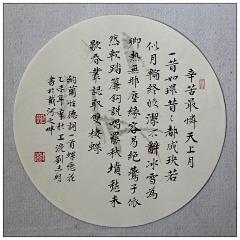 辛苦最憐天上月
一昔如環昔昔都成玦若
似月輪終皎潔不辭冰雪為
卿熱無那塵緣容易絕燕子依
然軟踏簾鉤說唱罷秋墳愁未
歇春叢認取雙棲蝶
納蘭性德詞一首蝶戀花
乙未年
書於戴河之畔